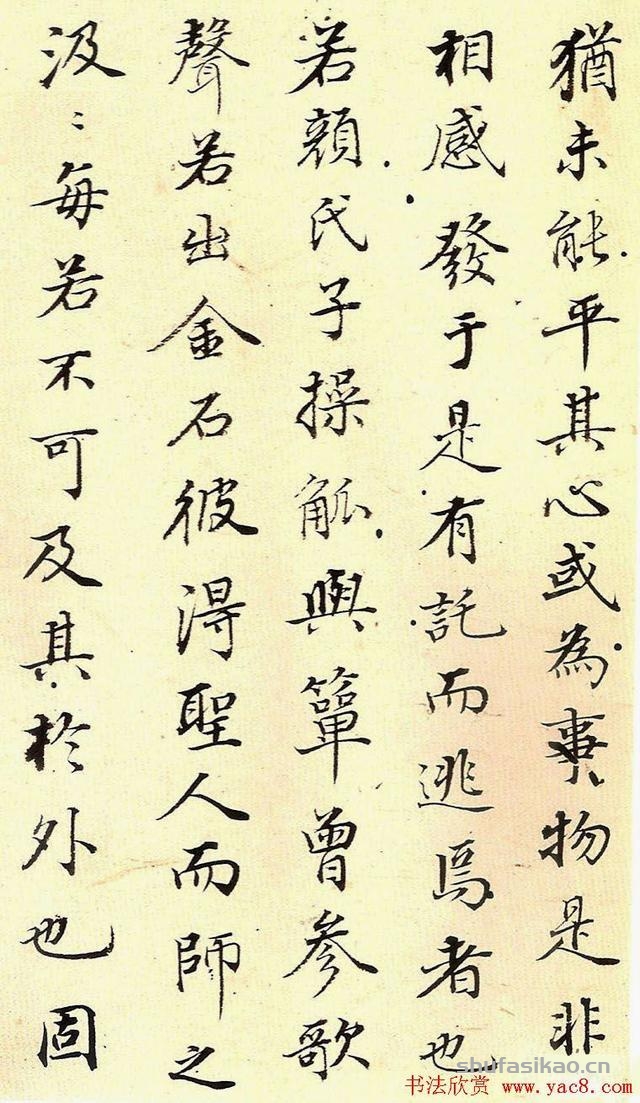 猶未能平其心或為事物是非
相感發于是有託而逃焉者也
若顏氏子操觚與簞曾參歌
聲若出金石彼得聖人而師之
汲〻每若不可及其於外也固
shufasikao.cn
书法欣赏 www.yac8.com